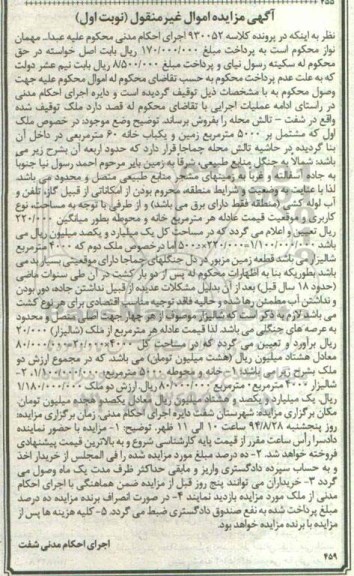 ۴۵۵
آگهی مزایده اموال غیرمنقول (نوبت اول)
نظر به اینکه در پرونده کلاسه ۹۳۰۰۵۲ اجرای احکام مدنی محکوم علیه عبدا... مهمان
نواز محکوم است به پرداخت مبلغ ۱۷۰/۰۰۰/۰۰۰ ریال بابت اصل خواسته در حق
محکوم له سکینه رسول نیای و پرداخت مبلغ ۸/۵۰۰/۰۰۰ ریال بابت نیم عشر دولت
که به علت عدم پرداخت محکوم به حسب تقاضای محکوم له اموال محکوم علیه جهت
وصول محکوم به با مشخصات ذیل توقیف گردیده است و دایره اجرای احکام مدنی
در راستای ادامه عملیات اجرایی با تقاضای محکوم له قصد دارد ملک توقیف شده
واقع در شفت - نالش محله را بفروش برساند. توضیح وضع موجود: در خصوص ملک
اول که مشتمل بر ۵۰۰۰ مترمربع زمین و یکباب خانه ۶۰ مترمربعی در داخل آن
بنا گردیده در حاشیه تالش محله چماچا قرار دارد که حدود اربعه آن بشرح زیر می
باشد: شمالا به جنگل منابع طبیعی، شرقا به زمین بایر مرحوم احمد رسول نیا جنوبا
به جاده آسفالت و غربا به زمینهای مشجر منابع طبیعی متصل و محدود می باشد.
لذا با عنایت به وضعیت و شرایط منطقه، محروم بودن از امکاناتی از قبیل گاز، تلفن و
آب لوله کشی (منطقه فقط دارای برق می باشد) و از طرفی با توجه به مساحت، نوع
کاربری و موقعیت قیمت عادله هر مترمربع خانه و محوطه بطور میانگین ۲۲۰/۰۰۰
ریال تعیین و اعلام می گردد که در مساحت کل یک میلیارد و یکصد میلیون ریال می
باشد ۱/۱۰۰/۰۰۰/۰۰۰=۲۲۰/۰۰۰×۵۰۰۰ اما درخصوص ملک دوم که ۴۰۰۰ مترمربع
شالیزار می باشد قطعه زمین مزبور در دل جنگلهای چماچا دارای موقعیتی سراشیب می
باشد بطوریکه بنا به اظهارات محکوم له پس از دو بار کشت در آن طی سنوات ماضی
(حدود ۱۸ سال قبل) بعد از آن بدلیل مشکلات عدیده از قبیل نداشتن جاده، دور بودن
و نداشتن آب مطمئن رها شده و حالیه فاقد توجیه مناسب اقتصادی برای هر نوع کشت
می باشد لازم به ذکر است که شالیزار موصوف از هر چهار جهت اصلی متصل و محدود
به عرصه های جنگلی می باشد. لذا قیمت عادله هر مترمربع از ملک (شالیزار) ۲۰/۰۰۰
ریال برآورد و تعیین می گردد که در مساحت کل ۸۰/۰۰۰/۰۰۰=۲۰/۰۰۰×۴۰۰۰
معادل هشتاد میلیون ریال (هشت میلیون تومان) می باشد که در مجموع ارزش دو
ملک بشرح زیر می باشد: ۱- خانه و محوطه ۵۰۰۰ مترمربع، ۱/۱۰۰/۰۰۰/۰۰۰، ۲-
شالیزار ۴۰۰۰ مترمربع - مترمربع ۸۰/۰۰۰/۰۰۰ ریال، ارزش دو ملک ۱/۱۸۰/۰۰۰/۰۰۰
ریال، یک میلیارد و یکصد و هشتاد میلیون ریال معادل یکصد و هجده میلیون تومان.
مکان برگزاری مزایده: شهرستان شفت دایره اجرای احکام مدنی، زمان برگزاری مزایده:
روز پنجشنبه ۹۴/۸/۲۸ ساعت ۱۰ الی ۱۱ ظهر. توضیح: ۱- مزایده با حضور نماینده
دادسرا رأس ساعت مقرر از قیمت پایه کارشناسی شروع و به بالاترین قیمت پیشنهادی
فروخته خواهد شد. ۲- ده درصد مبلغ مورد مزایده شده را فی المجلس از خریدار اخذ
و به حساب سپرده دادگستری واریز و مابقی حداکثر ظرف مدت یک ماه وصول می
گردد ۳- خریداران می توانند پنج روز قبل از مزایده ضمن هماهنگی با اجرای احکام
مدنی از ملک مورد مزایده بازدید نمایند ۴- در صورت انصراف برنده مزایده ده درصد
مبلغ پرداخت شده به نفع صندوق دادگستری ضبط می گردد. ۵- کلیه هزینه ها پس از
مزایده با برنده مزایده خواهد بود.
اجرای احکام مدنی شفت
۴۵۹